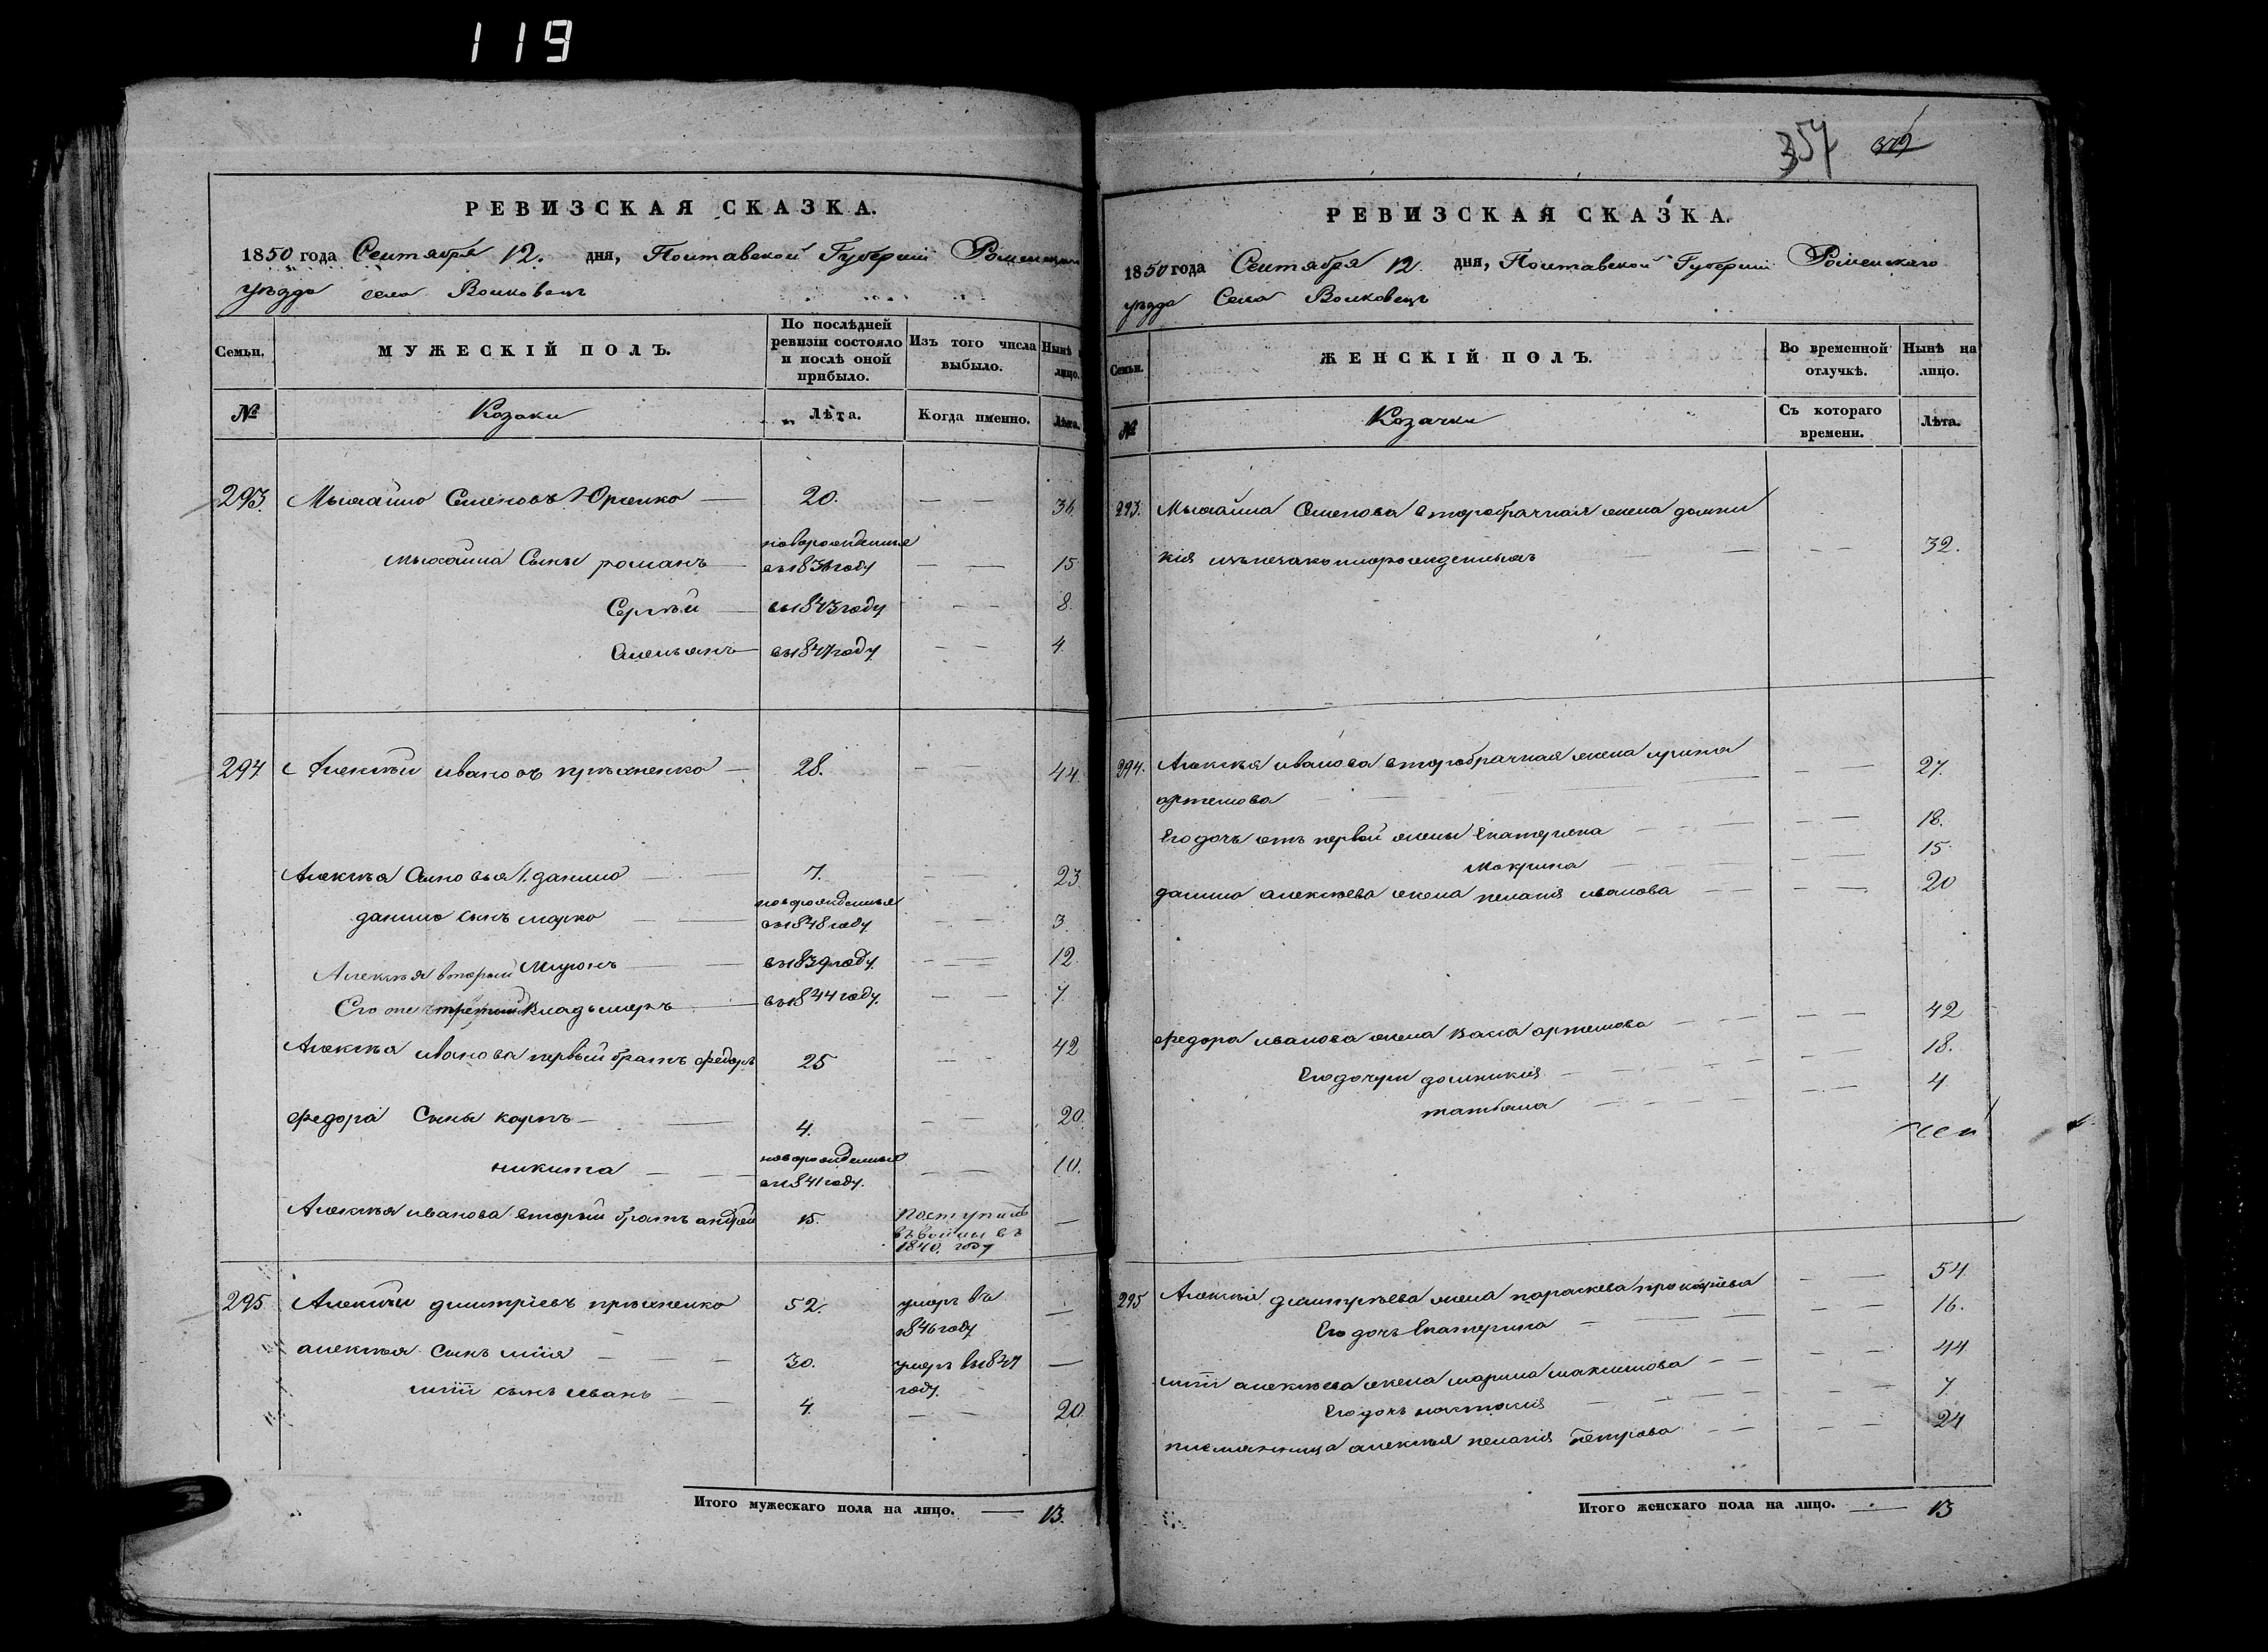 119
357 379
РЕВИЗСКАЯ СКАЗКА.
1850 года Сентября 12. дня, Полтавской Губерніи Роменскаго
уѣзда села Волковецъ
Семьи.
МУЖЕСКІЙ ПОЛЪ.
По послѣдней ревизіи состояло и послѣ оной прибыло.
Изъ того числа выбыло.
Нынѣ на лицо.
№
Козаки
Лѣта.
Когда именно.
Лѣта.
293. Мыхайло Семеновъ Юрченко 20. 36
Мыхайла Сыны романъ новорожденные въ 1836 году 15
Сергѣй въ 1843 году 8.
Емельянъ въ 1847 году 4.
294 Алексѣй ивановъ 28. 44.
Алексѣя Сыновья 1. данило 7. 23
данила сынъ марко новорожденные въ 1848 году 3.
Алексѣя вторый Миронъ въ 1839 году 12.
Его же третий Владымеръ въ 1844 году 7.
Алексѣя иванова первый братъ федоръ 25 42
федора Сыны карпъ 4. 20.
никита новорожденные въ 1841 году. 10.
Алексѣя иванова вторый братъ андрей 15. Поступилъ въ 1840. году
295 Алексѣй дмитріевъ 52. умеръ въ 1846 году
алексѣя Сынъ илія 30. умеръ въ 1847 году.
иліи сынъ иванъ 4. 20
Итого мужескаго пола на лицо. 13.
РЕВИЗСКАЯ СКАЗКА.
1850 года Сентября 12 дня, Полтавской Губерніи Роменскаго
уѣзда Села Волковецъ
Семьи.
ЖЕНСКІЙ ПОЛЪ.
Во временной отлучкѣ.
Нынѣ на лицо.
№
Козачки
Съ котораго времени.
Лѣта.
293. Мыхайла Семенова второбрачная жена домни
кія 32.
294. Алексѣя иванова второбрачная жена ирина 27.
артемова
Его дочь отъ первой жены Екатерина 18.
Макрина 15
данила алексѣева жена пелагія иванова 20
федора иванова жена Васса артемова 42
Его дочери домникія 18.
татіана 4
295 Алексѣя дмитріева жена параскева прокофіева 54
Его дочь Екатерина 16.
иліи алексѣева жена марина максимова 44
Его дочь настасія 7.
племянница алексѣя пелагія Петрова 24
Итого женскаго пола на лицо. 13